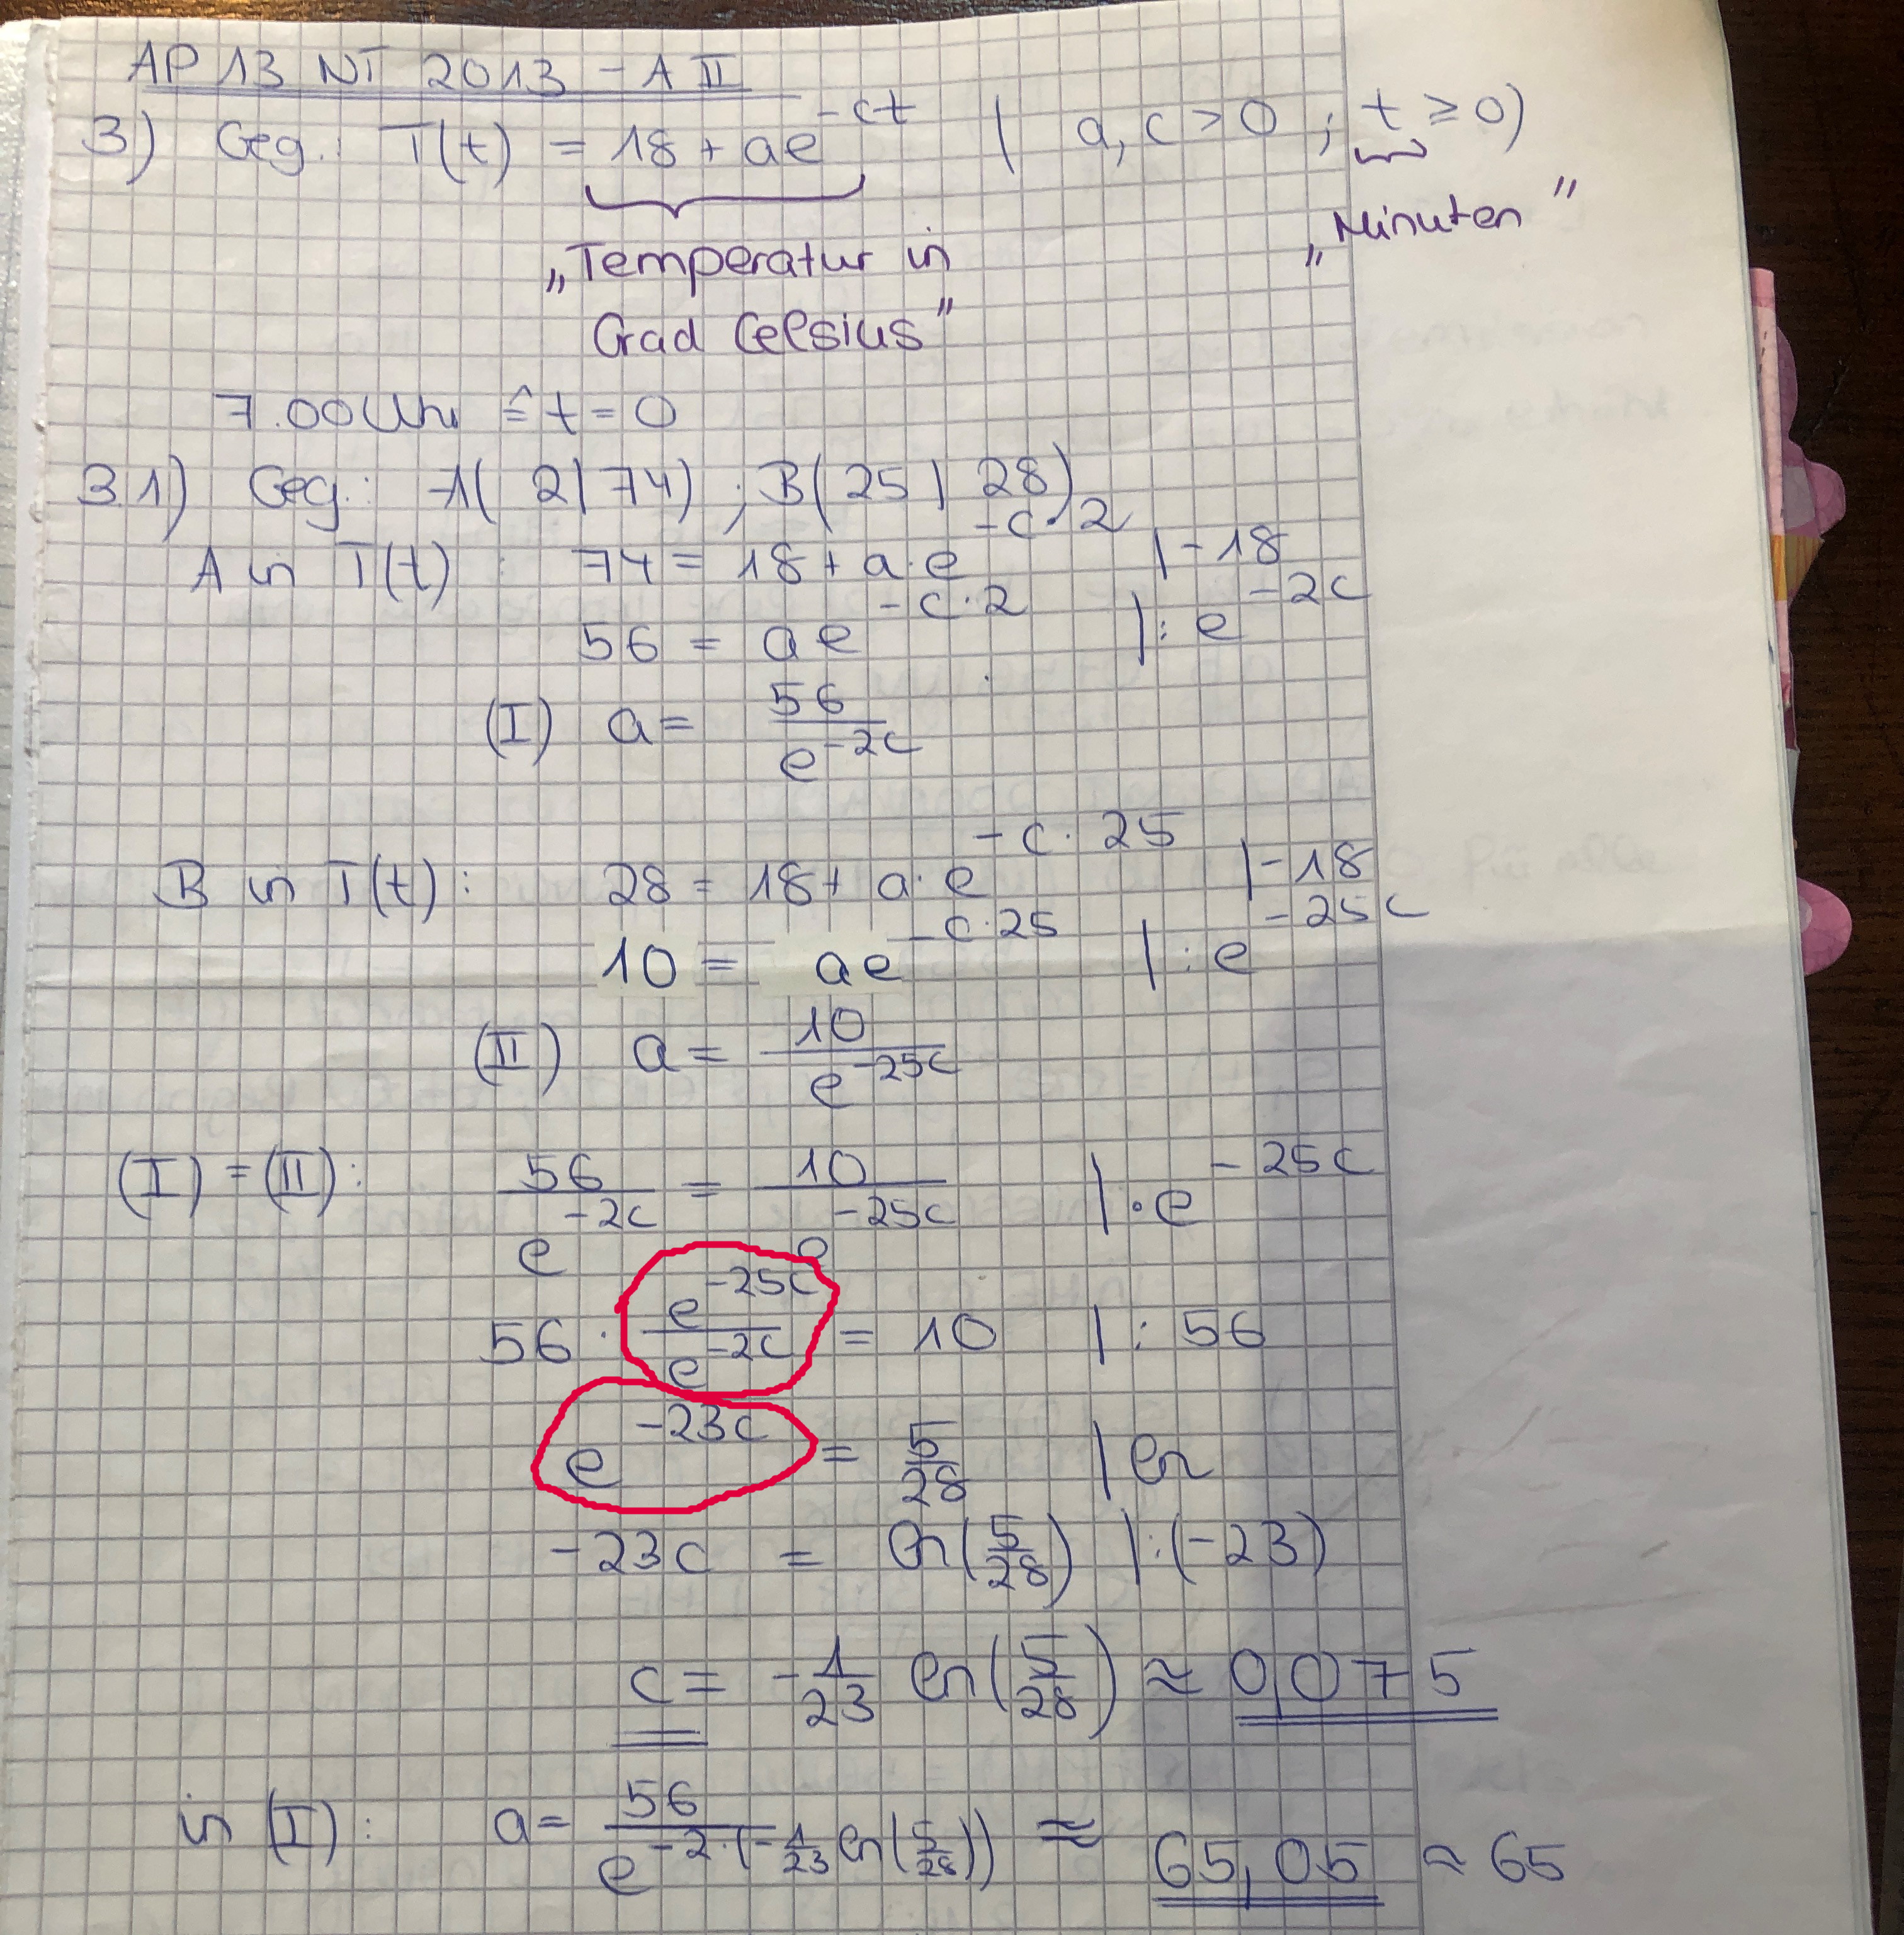 AP 13 NT 2013 - A II
3) Geg.: T(t) = 18 + ae^-ct ( a, c > 0 ; t ≥ 0)
„Temperatur in Grad Celsius" „Minuten"
7.00 Uhr ≙ t = 0
3.1) Geg.: A( 2 | 74) ; B( 25 | 28)
A in T(t) : 74 = 18 + a·e^-c·2 |-18
56 = ae^-c·2 |: e^-2c
(I) a = 56/e^-2c
B in T(t) : 28 = 18 + a·e^-c·25 |-18
10 = ae^-c·25 |: e^-25c
(II) a = 10/e^-25c
(I) = (II) : 56/e^-2c = 10/e^-25c |·e^-25c
56 · e^-25c/e^-2c = 10 |: 56
e^-23c = 5/28 | ln
-23c = ln(5/28) |:(-23)
c = -1/23 ln(5/28) ≈ 0,075
in (I) : a = 56/e^-2·(-1/23 ln(5/28)) ≈ 65,05 ≈ 65